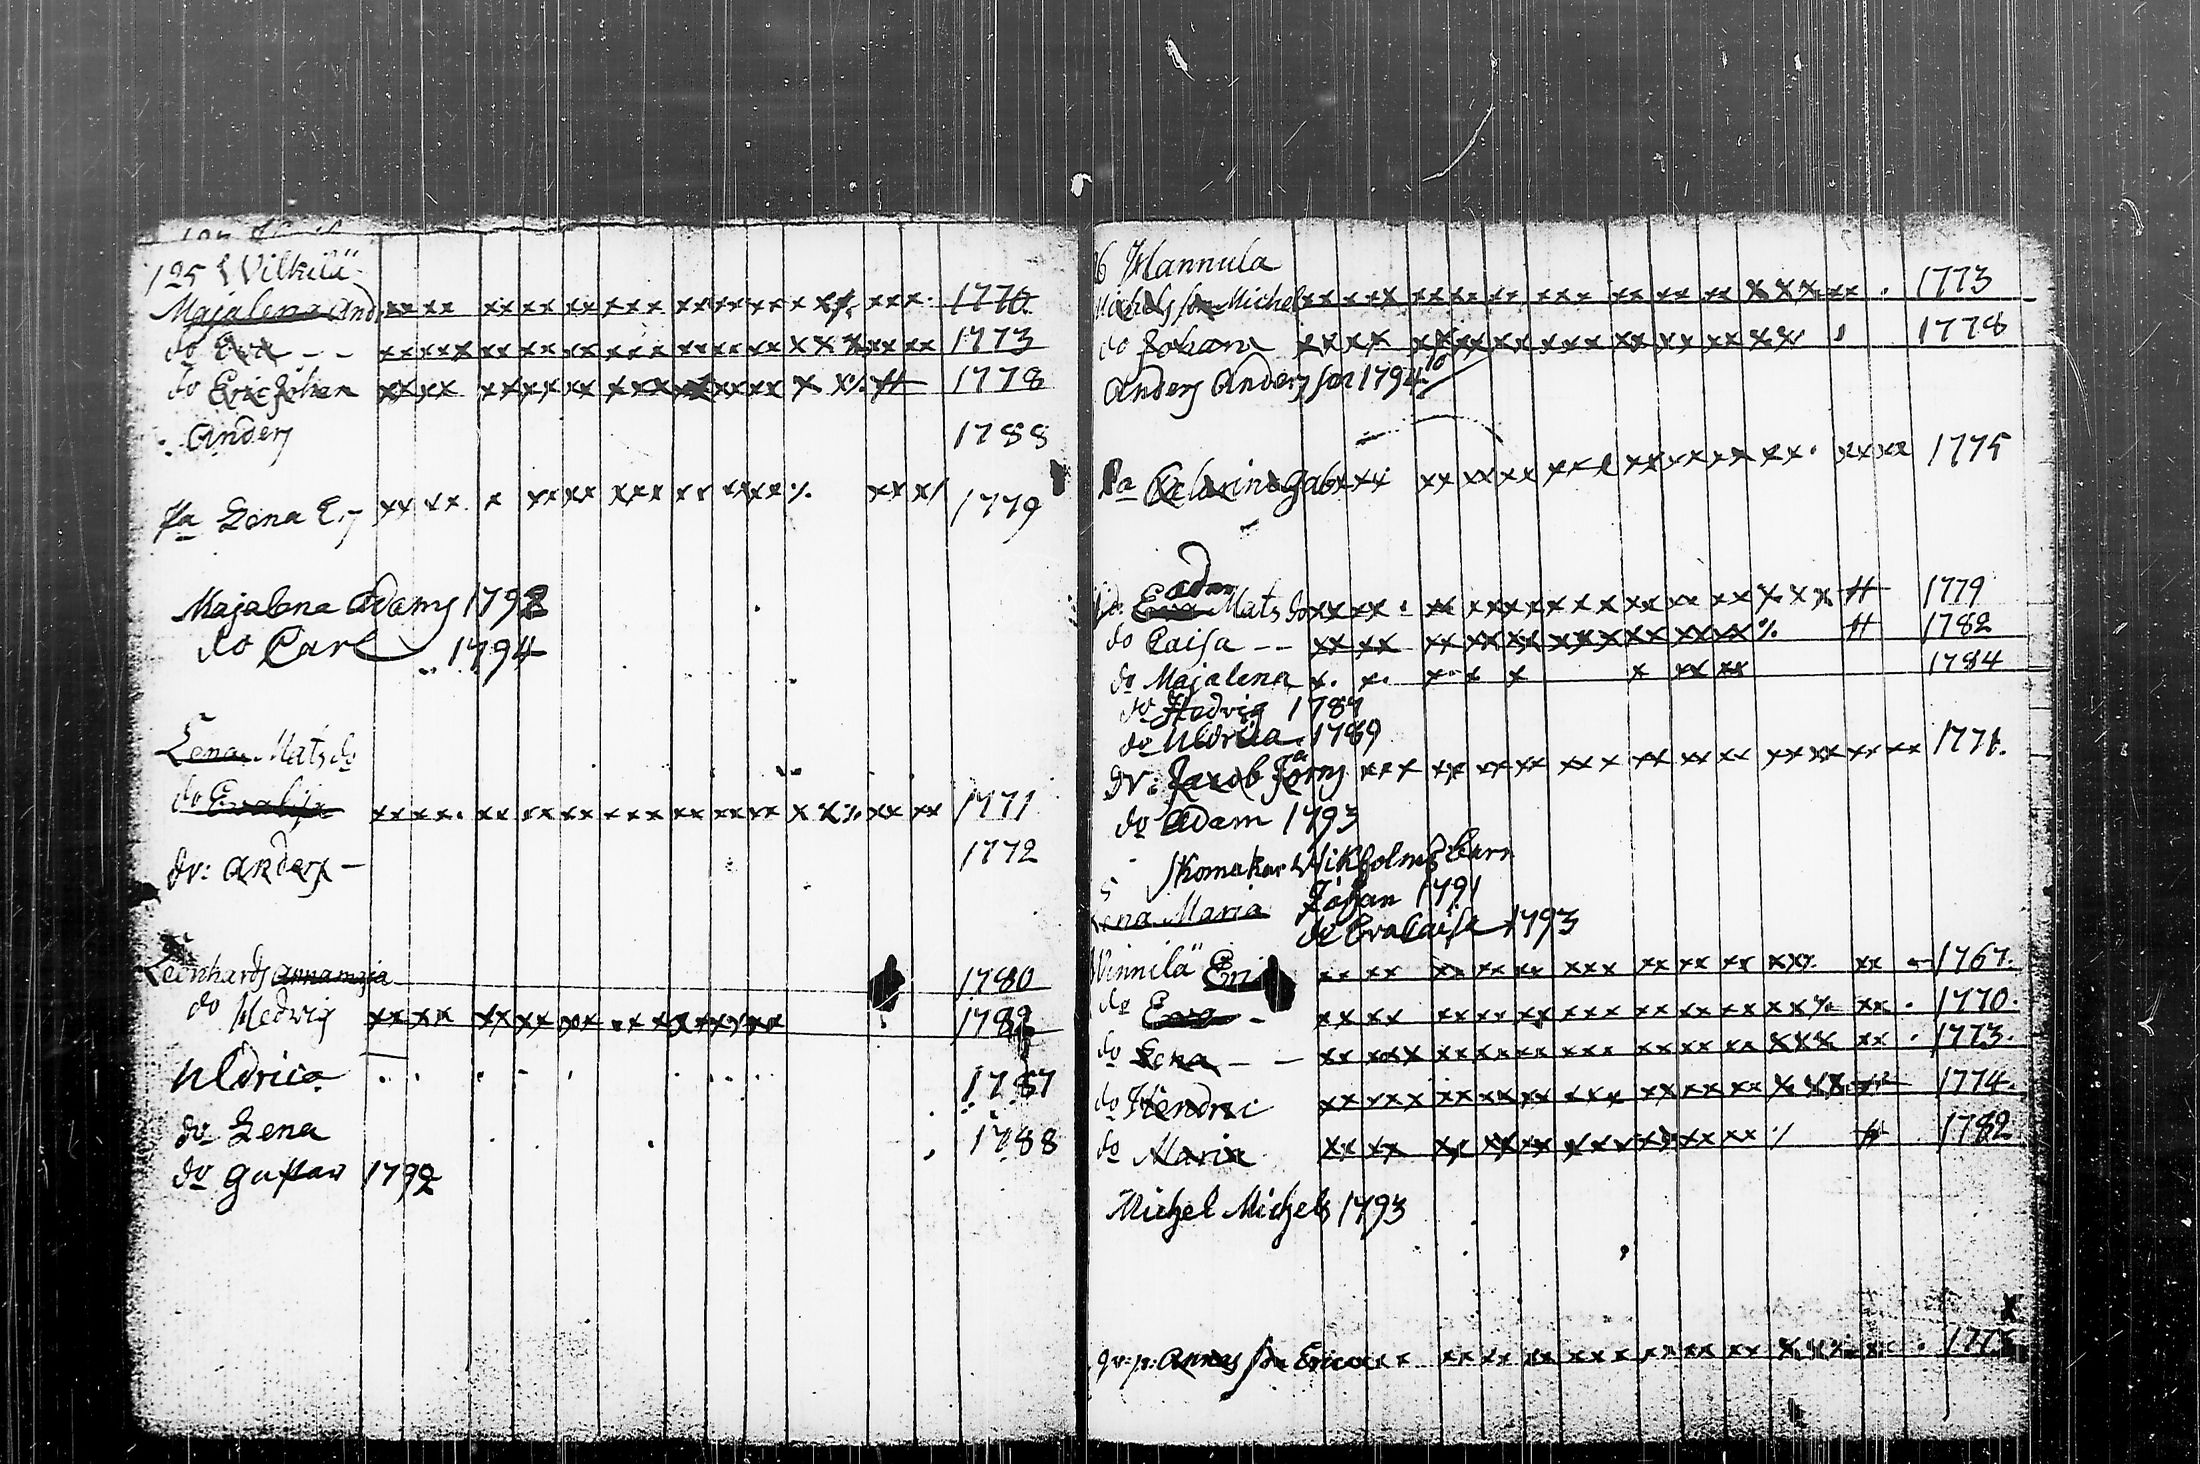 125 Wilkilä
Majalena And xx xx xx xx xx xxx xx xx xx x x xxx 1770
do Eva - - xx xxx xx xx xx xxx xx xx xx x x x xx xx 1773
do Eric Johan xx xx xx xx xx xxx xx xx x x % # 1778
Anders 1788
Pa Lena Er xx xx x xx xx xxx xx xx xx % xx x/ 1779
Majalena Adams 1792
do Carl 1794
Lena Mats do
do Evalisa xx xx xx xx xx xxx xx xx xx x x % xx xx 1771
dr: Anders — 1772
Leonhards Annamaja 1780
do Hedwig xx xx xx xx xx xx x x xx xx 1782
Uldrica 1787
do Lena 1788
do Gustav 1792
6 Hannula
Michels son Michel xx xx x xx xx xx xxx xx xx xx x x x xx . 1773
do Johan xx xx xx xx xx xxx xx xx xx x x 1778
Anders Anders son 1794 10
Pa Gab xx xx xx xx xxx xx xx xx xx . xx xx 1775
Adam
Mats do xx xx . xx xx xx xxx xx xx xx x x x # 1779
do Caisa - - xx xx xx xx xx xxx xx xx xx % # 1782
do Majalena x . x . x x x x xx xx 1784
do Hedvig 1787
do Uldrica 1789
dr: Jacob Jörans xx x xx xx xx xx x xx xx xx xx xx xx xx 1771.
do Adam 1793
Skomakar Wikholms barn
Lena Maria Johan 1791
do Eva Caisa 1793
Winnilä Eric xx xx xx xx xx xxx xx xx xx xx% xx 1767.
do Eva - xx xx xx xx xx xxx xx xx xx x x % xx . 1770.
do Lena - - xx xxx xx xx xx xxx xx xx xx x x x xx . 1773.
do Hendric xx xx x xx xx xx xxx xx xx xx x x x # 1774.
do Maria xx xx xx xx xx xxx xx xx xx % # 1782
Michel Michels 1793
son Eric xx x xx xx xx xxx xx xx xx x x % x .